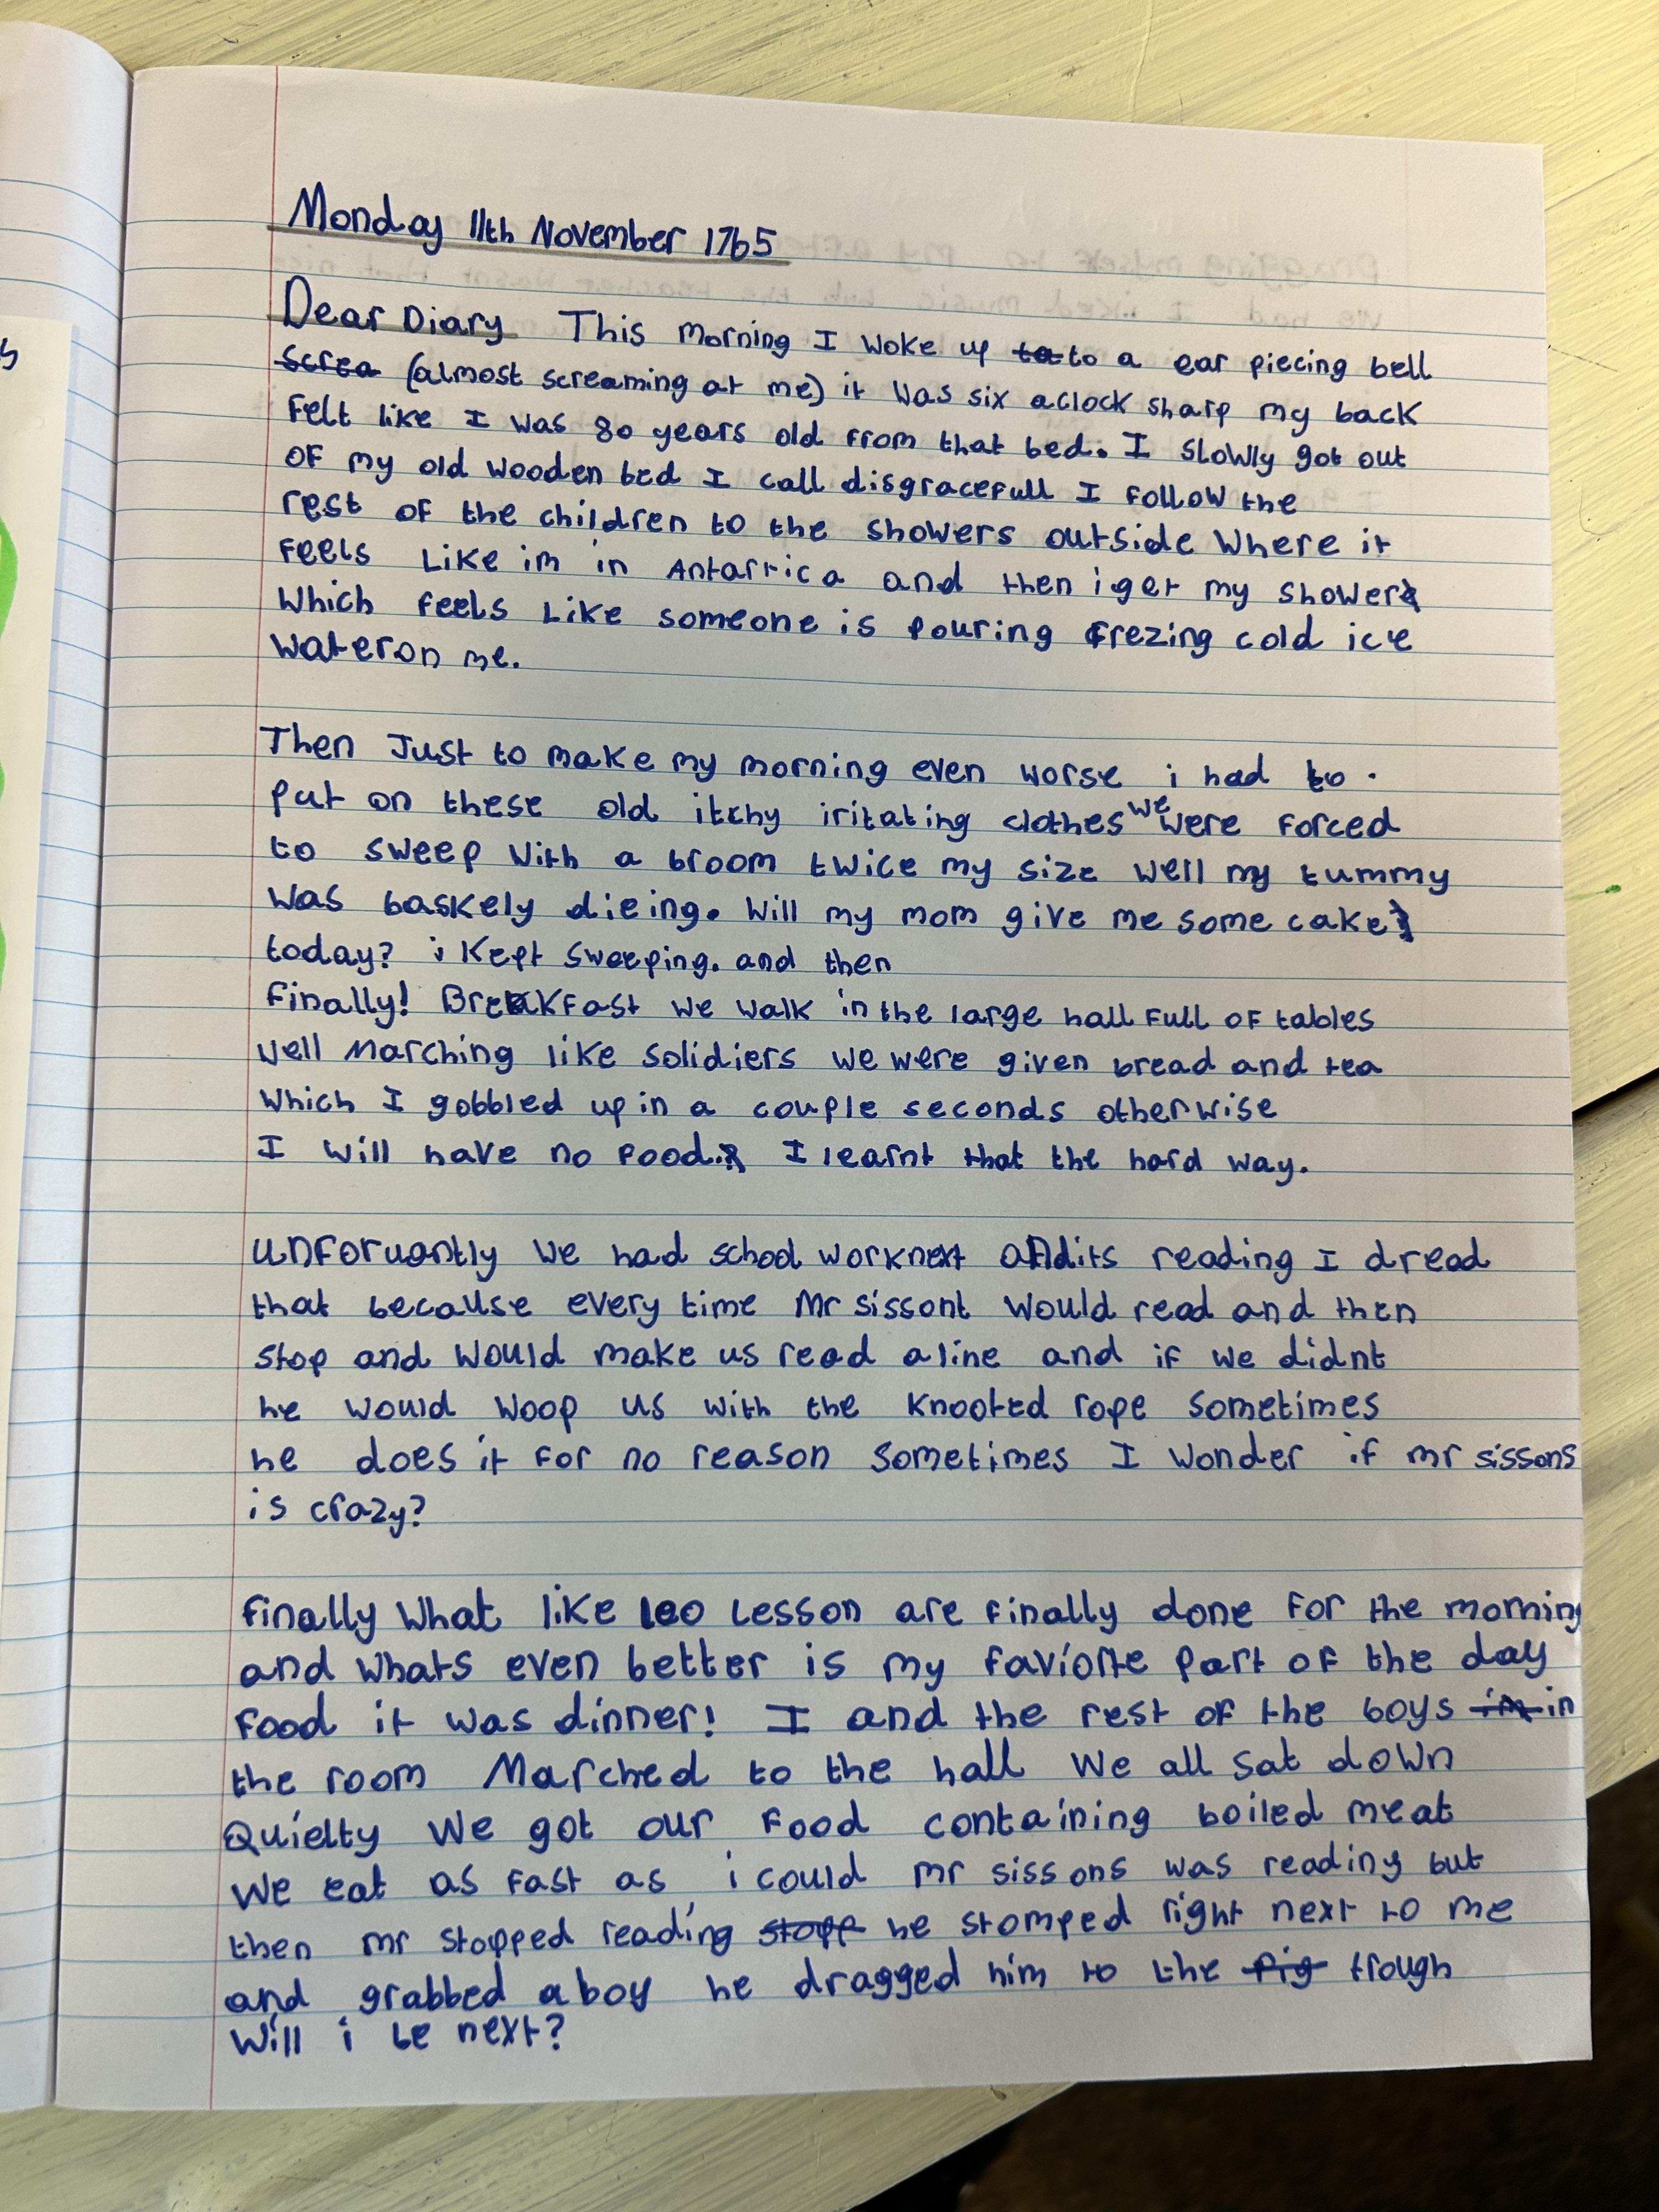 Monday 11th November 1765
Dear Diary This morning I woke up to a ear piecing bell
(almost screaming at me) it was six aclock sharp my back
felt like I was 80 years old from that bed. I slowly got out
of my old wooden bed I call disgracefull I follow the
rest of the children to the showers outside where it
feels like im in Antartica and then i get my shower
which feels like someone is pouring frezing cold ice
water on me.
Then Just to make my morning even worse i had to.
put on these old itchy iritating clothes we were forced
to sweep with a broom twice my size well my tummy
was baskely dieing. Will my mom give me some cake
today? i kept sweeping. and then
finally! Breakfast we walk in the large hall full of tables
well marching like solidiers we were given bread and tea
which I gobbled up in a couple seconds otherwise
I will have no food. I learnt that the hard way.
unforuantly we had school work next and its reading I dread
that because every time Mr sissont would read and then
stop and would make us read a line and if we didnt
he would woop us with the knooted rope sometimes
he does it for no reason sometimes I wonder if mr sissons
is crazy?
finally what like 100 lesson are finally done for the morning
and whats even better is my faviorte part of the day
food it was dinner! I and the rest of the boys in
the room Marched to the hall we all sat down
Quielty we got our food containing boiled meat
we eat as fast as i could mr sissons was reading but
then mr stopped reading he stomped right next to me
and grabbed a boy he dragged him to the trough
will i be next?